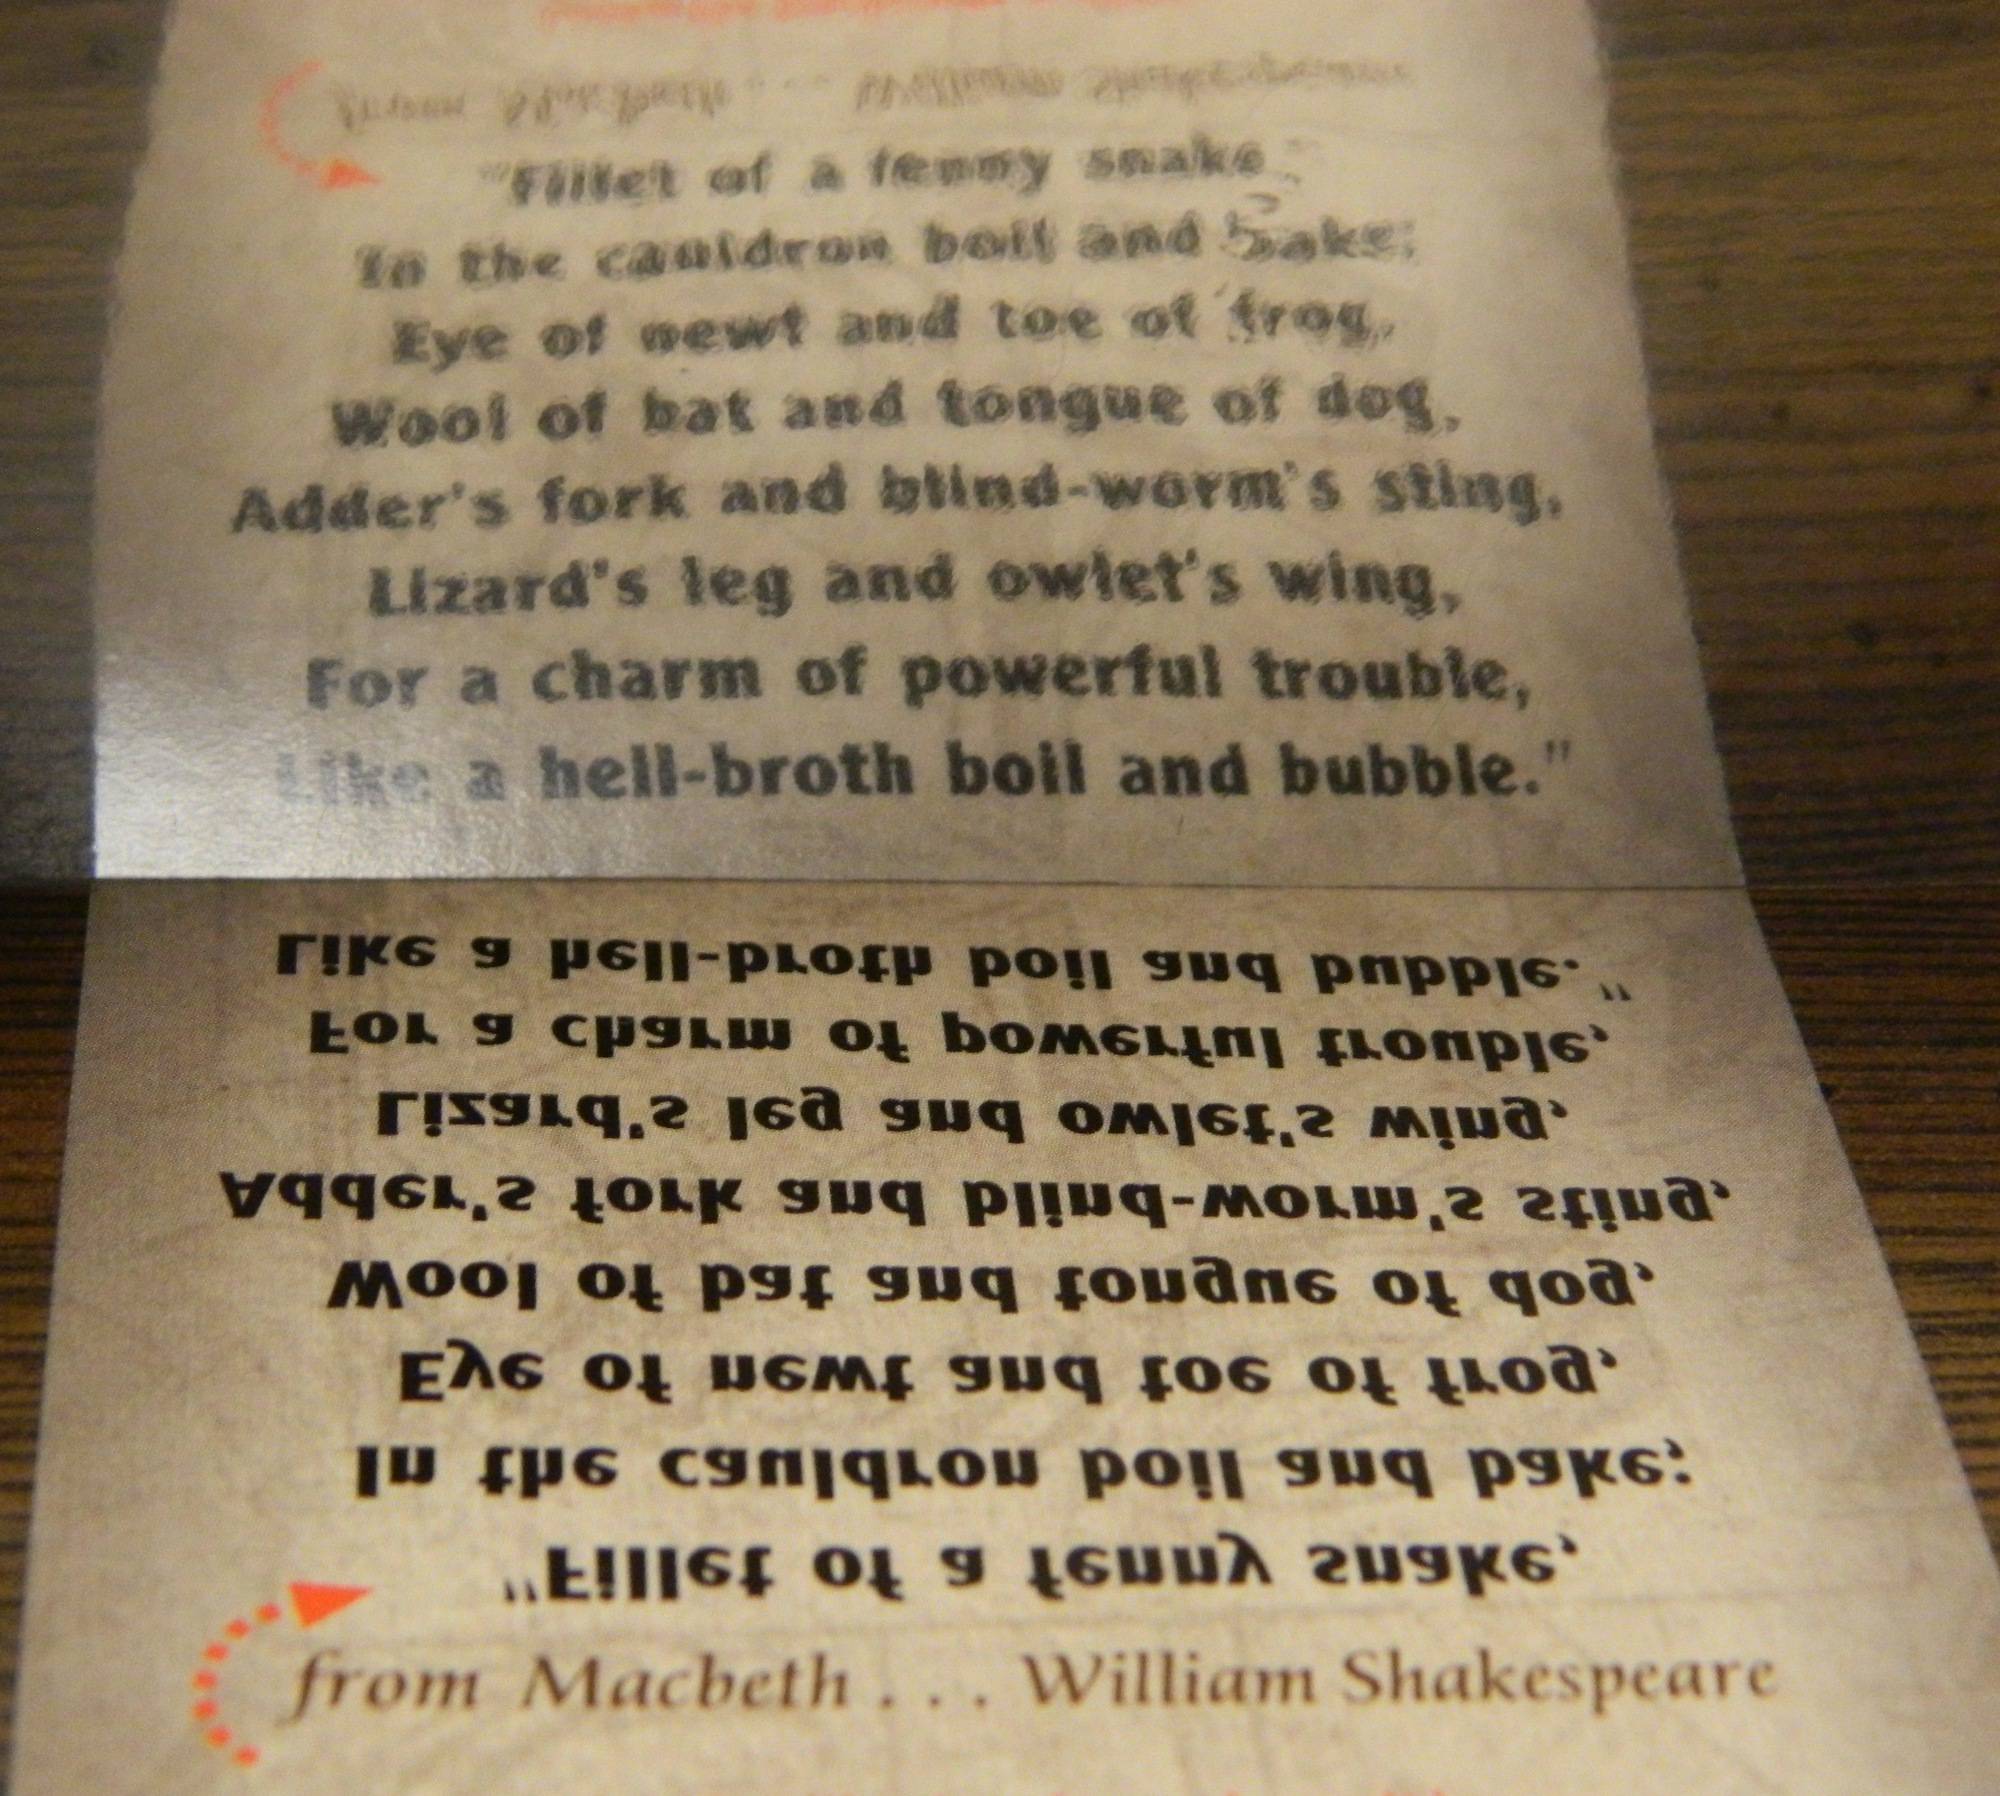 "Fillet of a fenny snake,
In the cauldron boil and bake;
Eye of newt and toe of frog,
Wool of bat and tongue of dog,
Adder's fork and blind-worm's sting,
Lizard's leg and owlet's wing,
For a charm of powerful trouble,
Like a hell-broth boil and bubble."
Like a hell-broth boil and bubble."
For a charm of powerful trouble,
Lizard's leg and owlet's wing,
Adder's fork and blind-worm's sting,
Wool of bat and tongue of dog,
Eye of newt and toe of frog,
In the cauldron boil and bake;
"Fillet of a fenny snake,
from Macbeth . . . William Shakespeare